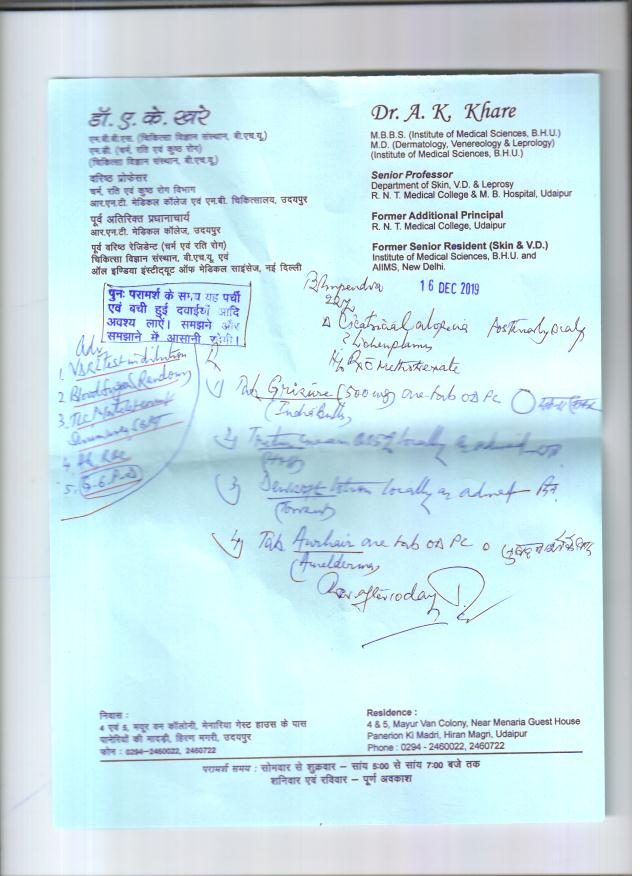 डॉ. ए. के. खरे
एम.बी.बी.एस. (चिकित्सा विज्ञान संस्थान, बी.एच.यू.)
एम.डी. (चर्म, रति एवं कुष्ठ रोग)
(चिकित्सा विज्ञान संस्थान, बी.एच.यू.)
वरिष्ठ प्रोफेसर
चर्म, रति एवं कुष्ठ रोग विभाग
आर.एन.टी. मेडिकल कॉलेज एवं एम.बी. चिकित्सालय, उदयपुर
पूर्व अतिरिक्त प्रधानाचार्य
आर.एन.टी. मेडिकल कॉलेज, उदयपुर
पूर्व वरिष्ठ रेजिडेन्ट (चर्म एवं रति रोग)
चिकित्सा विज्ञान संस्थान, बी.एच.यू. एवं
ऑल इण्डिया इंस्टीट्यूट ऑफ मेडिकल साइंसेज, नई दिल्ली
Dr. A. K. Khare
M.B.B.S. (Institute of Medical Sciences, B.H.U.)
M.D. (Dermatology, Venereology & Leprology)
(Institute of Medical Sciences, B.H.U.)
Senior Professor
Department of Skin, V.D. & Leprosy
R. N. T. Medical College & M. B. Hospital, Udaipur
Former Additional Principal
R. N. T. Medical College, Udaipur
Former Senior Resident (Skin & V.D.)
Institute of Medical Sciences, B.H.U. and
AIIMS, New Delhi.
पुनः परामर्श के समय यह पर्ची
एवं बची हुई दवाईयाँ आदि
अवश्य लाएं। समझने और
समझाने में आसानी रहेगी।
16 DEC 2019
Cicatricial alopecia
? Lichenplanus
Methotrexate
Adv
1. VDRL Test in dilution
2. Blood Sugar Random
3.
4.
5. G-6 P-D
1) Tab (500 mg) one tab OD PC
2) cream locally
3) lotion locally as advised
(Torrent)
4) Tab one tab OD PC
after 10 day
निवास :
4 एवं 5, मयूर वन कॉलोनी, मेनारिया गेस्ट हाउस के पास
पानेरियों की मादड़ी, हिरण मगरी, उदयपुर
फोन : 0294-2460022, 2460722
Residence :
4 & 5, Mayur Van Colony, Near Menaria Guest House
Panerion Ki Madri, Hiran Magri, Udaipur
Phone : 0294 - 2460022, 2460722
परामर्श समय : सोमवार से शुक्रवार – सांय 5:00 से सांय 7:00 बजे तक
शनिवार एवं रविवार – पूर्ण अवकाश